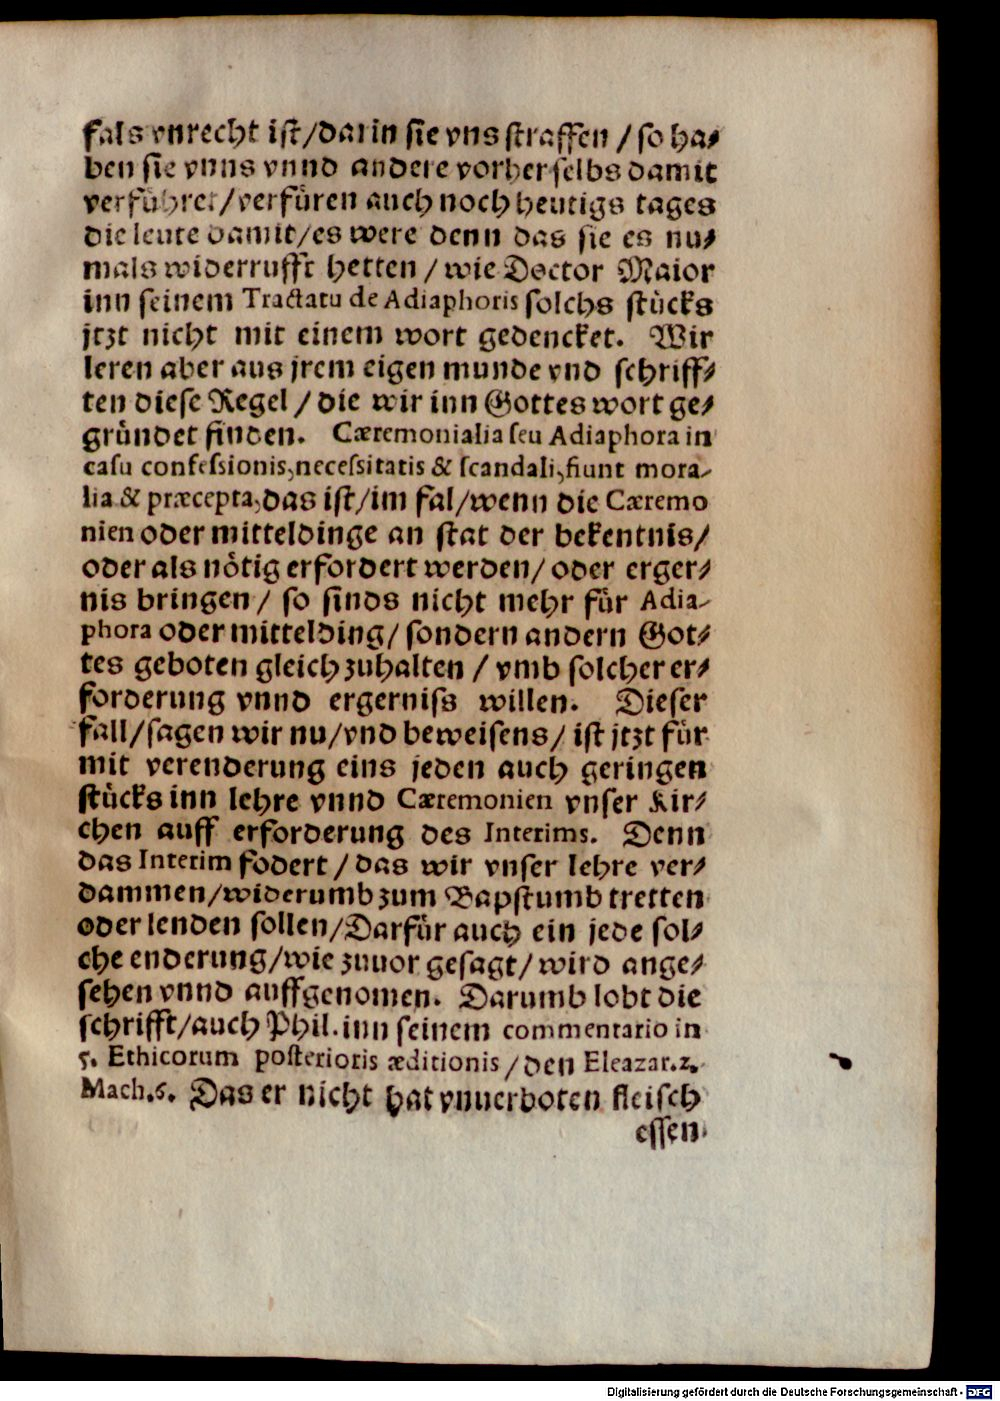 fals vnrecht ist/darin sie vns straffen / so ha⸗
ben sie vnns vnnd andere vorher selbs damit
verführet/verfüren auch noch heutigs tages
die leute damit/es were denn das sie es nu⸗
mals widerrufft hetten / wie Doctor Maior
inn seinem Tractatu de Adiaphoris solchs stücks
jtzt nicht mit einem wort gedencket. Wir
leren aber aus jrem eigen munde vnd schriff⸗
ten diese Regel / die wir inn Gottes wort ge⸗
gründet finden. Cæremonialia seu Adiaphora in
casu confessionis, necessitatis & scandali, fiunt mora⸗
lia & præcepta, das ist/im fal/wenn die Cæremo
nien oder mitteldinge an stat der bekentnis/
oder als nötig erfordert werden/ oder erger⸗
nis bringen / so sinds nicht mehr für Adia⸗
phora oder mittelding/ sondern andern Got⸗
tes geboten gleich zuhalten / vmb solcher er⸗
forderung vnnd ergerniss willen. Dieser
fall/sagen wir nu/vnd beweisens/ ist jtzt für
mit verenderung eins jeden auch geringen
stücks inn lehre vnnd Cæremonien vnser Kir⸗
chen auff erforderung des Interims. Denn
das Interim fodert / das wir vnser lehre ver⸗
dammen/widerumb zum Bapstumb tretten
oder lenden sollen/Darfür auch ein jede sol⸗
che enderung/wie zuuor gesagt/ wird ange⸗
sehen vnnd auffgenomen. Darumb lobt die
schrifft/auch Phil. inn seinem commentario in
5. Ethicorum posterioris æditionis / den Eleazar. 2.
Mach. 6. Das er nicht hat vnuerboten fleisch
essen
Digitalisierung gefördert durch die Deutsche Forschungsgemeinschaft - DFG